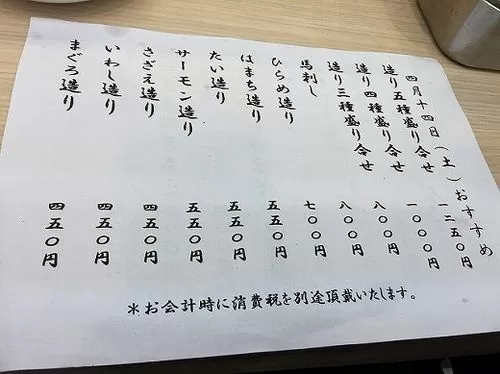 四月十四日(土)おすすめ
造り五種盛り合せ 一二五〇円
造り四種盛り合せ 一〇〇〇円
造り三種盛り合せ 八〇〇円
馬刺し 八〇〇円
ひらめ造り 七〇〇円
はまち造り 五五〇円
たい造り 五五〇円
サーモン造り 五五〇円
さざえ造り 四五〇円
いわし造り 四五〇円
まぐろ造り 四五〇円
*お会計時に消費税を別途頂戴いたします。